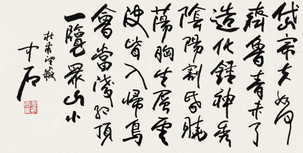 岱宗夫如何
齊魯青未了
造化鍾神秀
陰陽割昏曉
蕩胸生層雲
決眥入歸鳥
會當凌絕頂
一覽眾山小
杜甫望嶽